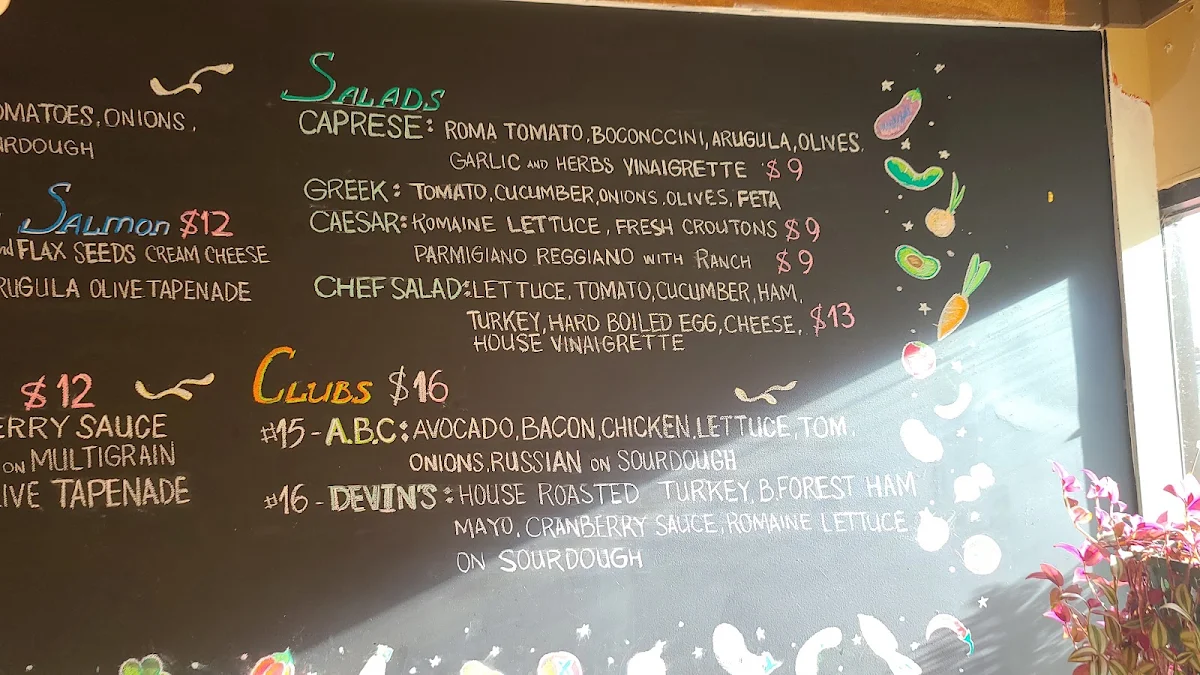 TOMATOES, ONIONS,
SOURDOUGH
SALMON $12
and FLAX SEEDS CREAM CHEESE
ARUGULA OLIVE TAPENADE
$12
SAUCE
ON MULTIGRAIN
TAPENADE
SALADS
CAPRESE: ROMA TOMATO, BOCONCCINI, ARUGULA, OLIVES,
GARLIC AND HERBS VINAIGRETTE $9
GREEK: TOMATO, CUCUMBER, ONIONS, OLIVES, FETA
CAESAR: ROMAINE LETTUCE, FRESH CROUTONS $9
PARMIGIANO REGGIANO WITH RANCH $9
CHEF SALAD: LETTUCE, TOMATO, CUCUMBER, HAM,
TURKEY, HARD BOILED EGG, CHEESE, $13
HOUSE VINAIGRETTE
CLUBS $16
#15 - A.B.C: AVOCADO, BACON, CHICKEN, LETTUCE, TOM,
ONIONS, RUSSIAN ON SOURDOUGH
#16 - DEVIN'S: HOUSE ROASTED TURKEY, B.FOREST HAM
MAYO, CRANBERRY SAUCE, ROMAINE LETTUCE
ON SOURDOUGH